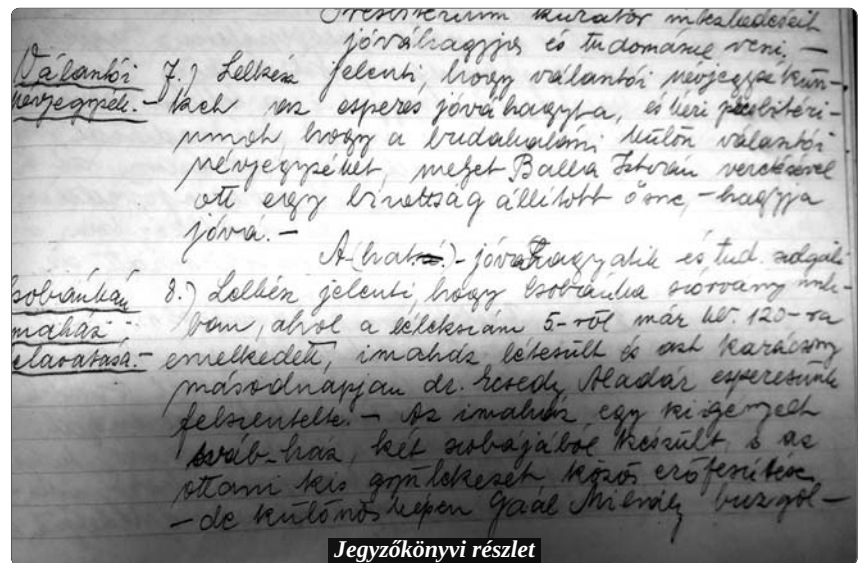 Presbitérium kurátor intézkedéseit
jóváhagyja és tudomásul veszi. –
Választói
névjegyzék. –
7.) Lelkész jelenti, hogy választói névjegyzékün-
ket az esperes jóváhagyta, és kéri presbitéri-
umot, hogy a budakalászi külön választói
névjegyzéket, melyet Balla István vezetésével
ott egy bizottság állított össze, – hagyja
jóvá. –
A – jóváhagyatik és tud. szolgál
Csobánkán
imaház
avatása. –
8.) Lelkész jelenti, hogy Csobánka szórvány
ban, ahol a lélekszám 5-ről már kb. 120-ra
emelkedett, imaház létesült és azt karácsony
másodnapján dr. Ecsedy Aladár esperesünk
felszentelte. – Az imaház egy kiigényelt
sváb-ház két szobájából készült, s az
ottani kis gyülekezet közös erőfeszítése
– de különösképen Gaál Mihály buzgól –
Jegyzőkönyvi részlet